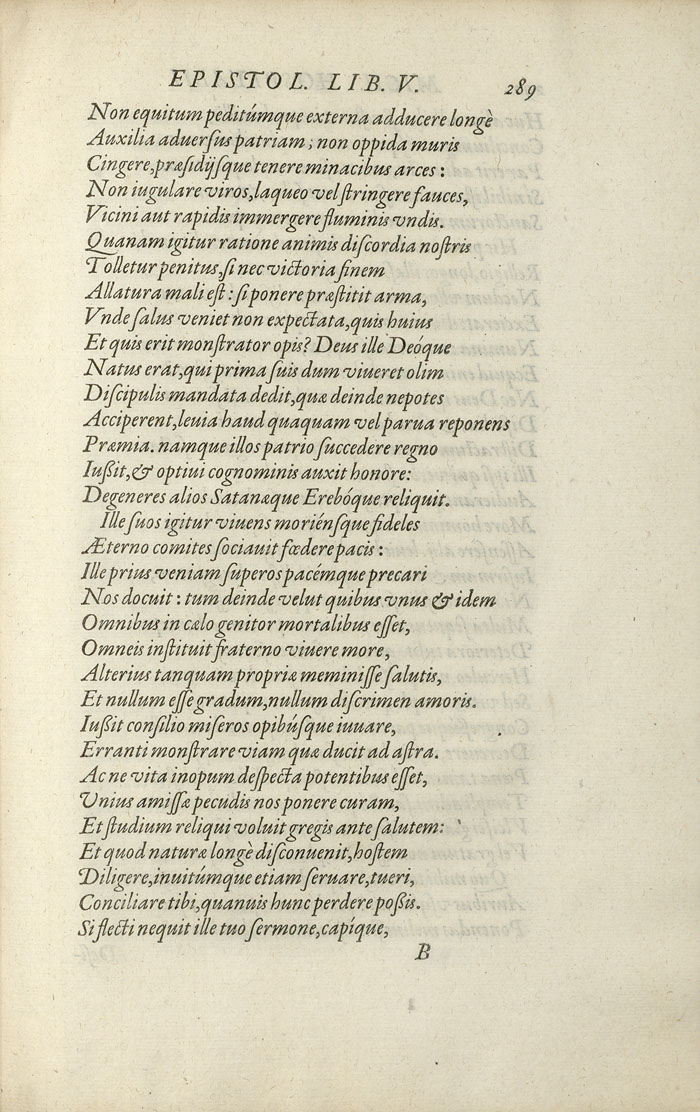 EPISTOL. LIB. V. 289
Non equitum peditúmque externa adducere longè
Auxilia aduerſus patriam; non oppida muris
Cingere, præſidijſque tenere minacibus arces:
Non iugulare viros, laqueo vel ſtringere fauces,
Vicini aut rapidis immergere fluminis vndis.
Quanam igitur ratione animis diſcordia noſtris
Tolletur penitus, ſi nec victoria finem
Allatura mali eſt: ſi ponere præſtitit arma,
Vnde ſalus veniet non expectata, quis huius
Et quis erit monſtrator opis? Deus ille Deóque
Natus erat, qui prima ſuis dum viueret olim
Diſcipulis mandata dedit, quæ deinde nepotes
Acciperent, leuia haud quaquam vel parua reponens
Præmia. namque illos patrio ſuccedere regno
Iußit, & optiui cognominis auxit honore:
Degeneres alios Satanæque Erebóque reliquit.
Ille ſuos igitur viuens moriénſque fideles
Æterno comites ſociauit fœdere pacis:
Ille prius veniam ſuperos pacémque precari
Nos docuit: tum deinde velut quibus vnus & idem
Omnibus in cælo genitor mortalibus eſſet,
Omneis inſtituit fraterno viuere more,
Alterius tanquam propriæ meminiſſe ſalutis,
Et nullum eſſe gradum, nullum diſcrimen amoris.
Iußit conſilio miſeros opibúſque iuuare,
Erranti monſtrare viam quæ ducit ad aſtra.
Ac ne vita inopum deſpecta potentibus eſſet,
Vnius amiſſæ pecudis nos ponere curam,
Et ſtudium reliqui voluit gregis ante ſalutem:
Et quod naturæ longè diſconuenit, hoſtem
Diligere, inuitúmque etiam ſeruare, tueri,
Conciliare tibi, quanuis hunc perdere poßis.
Si flecti nequit ille tuo ſermone, capíque,
B